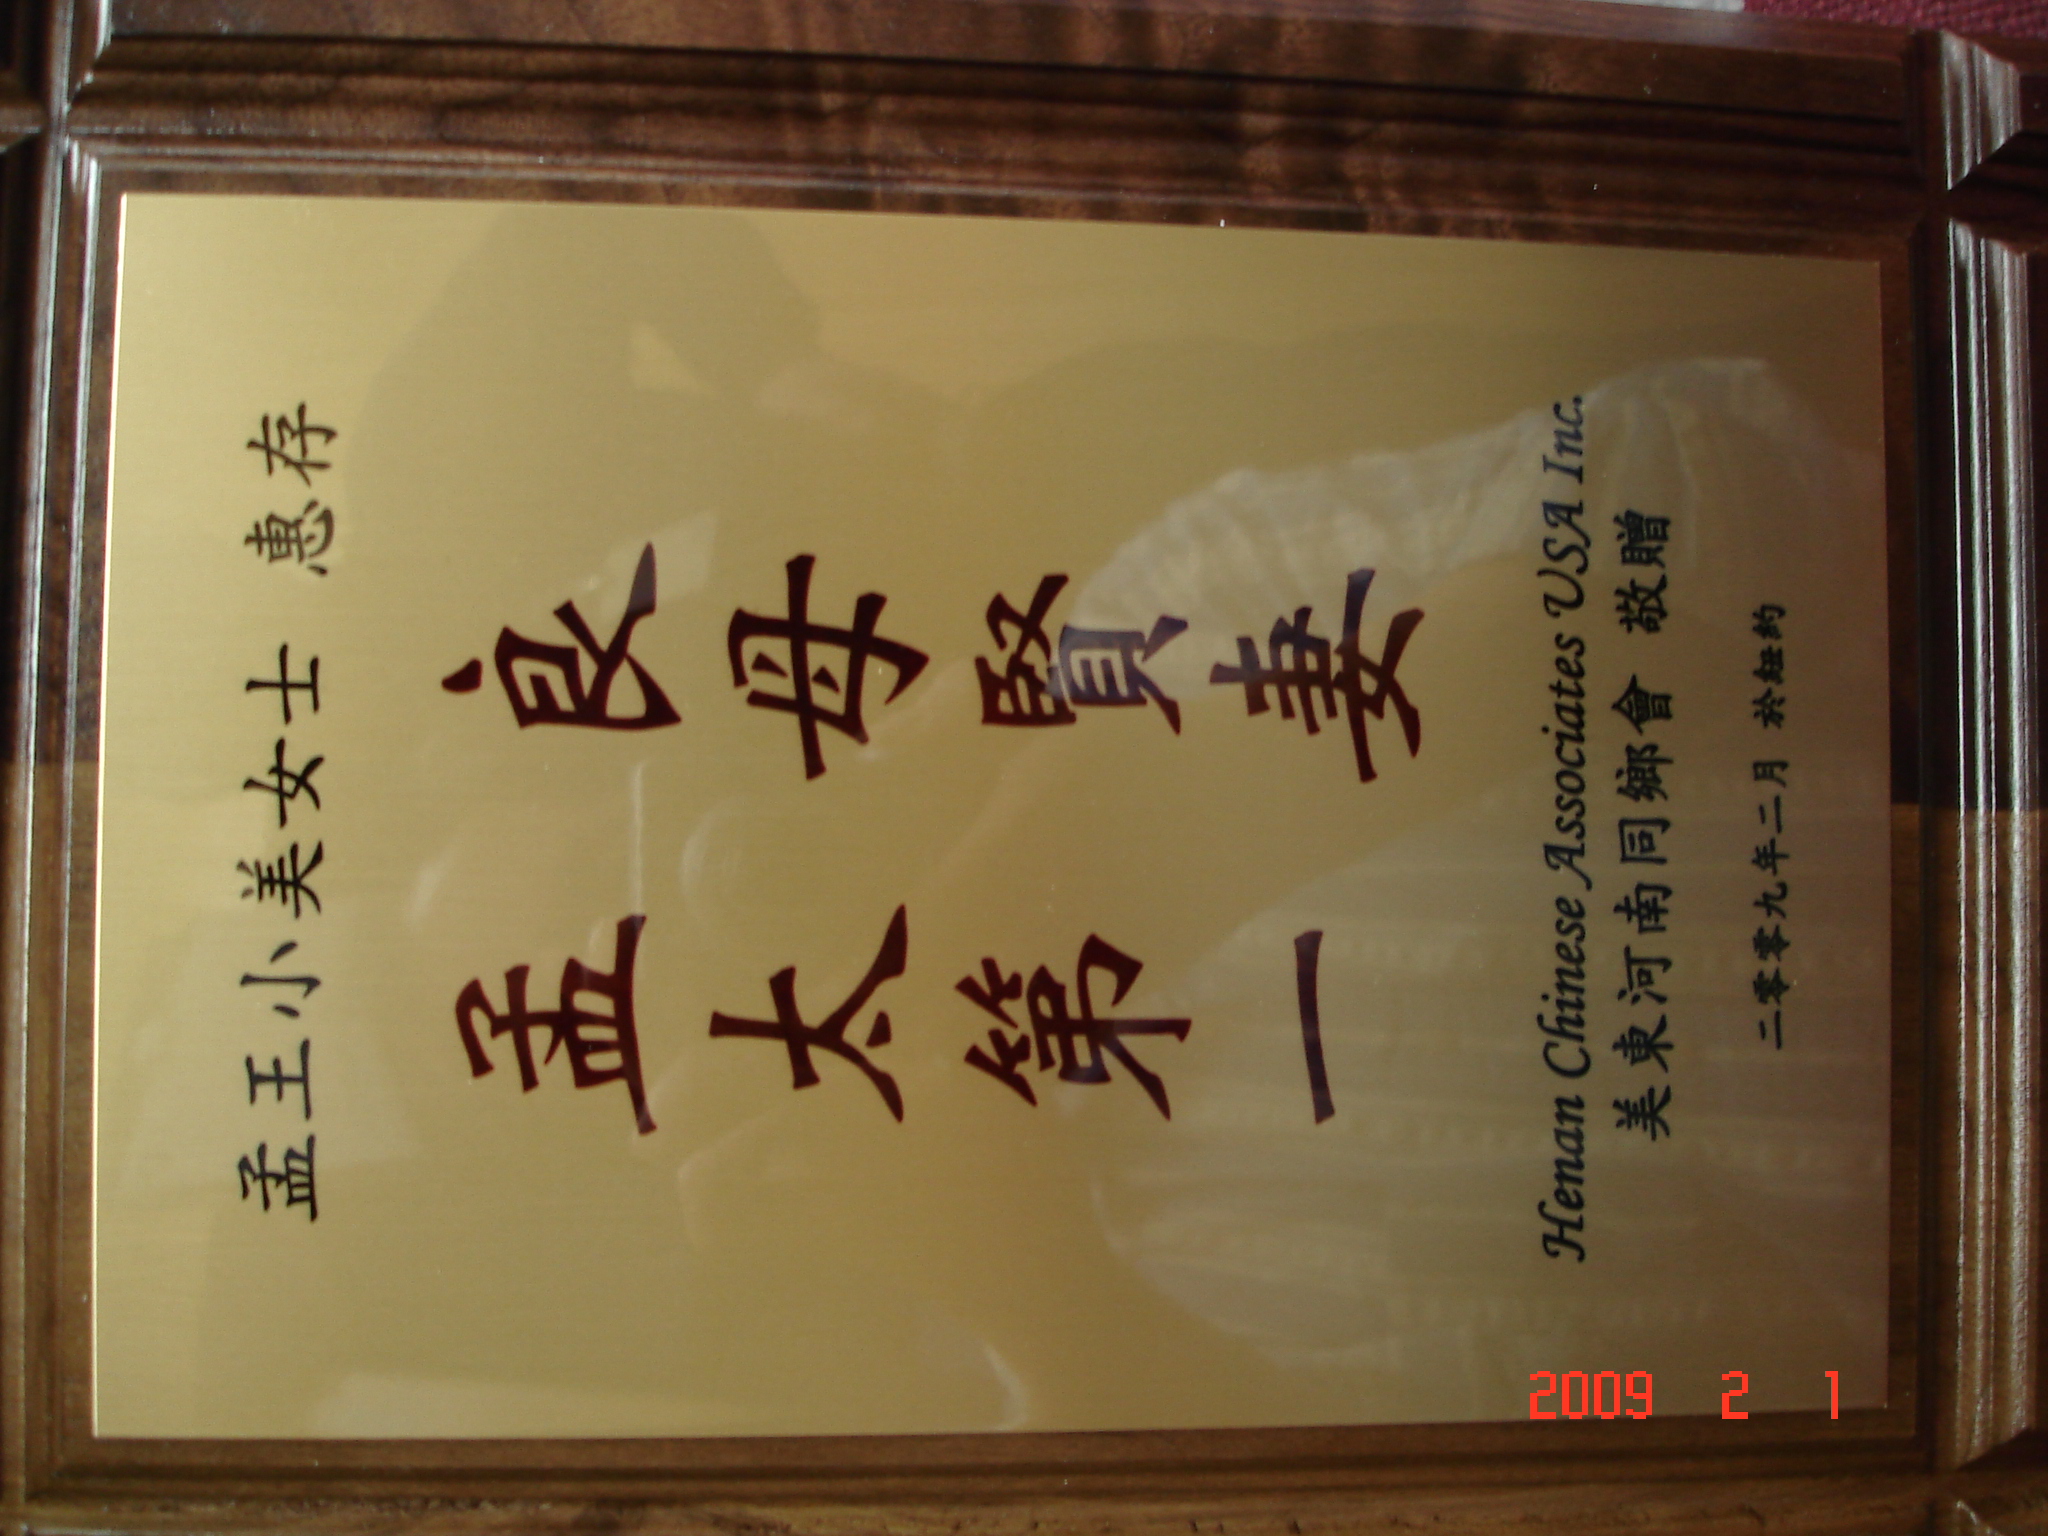 孟王小美女士 惠存
良母賢妻
孟太第一
Henan Chinese Associates USA Inc.
美東河南同鄉會 敬贈
二零零九年二月 於紐約
2009 2 1